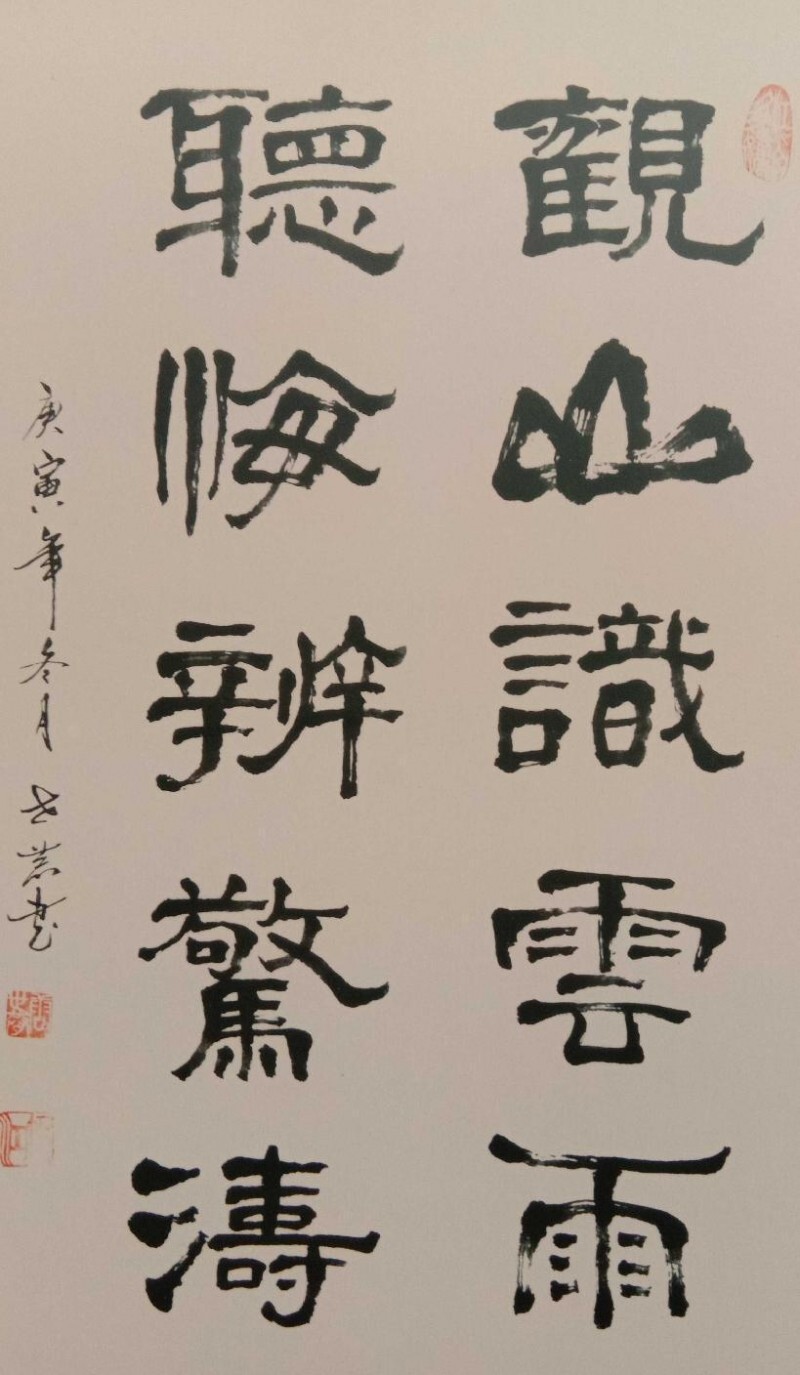 観山識雲雨
聽海辨驚濤
庚寅年冬月 世 书